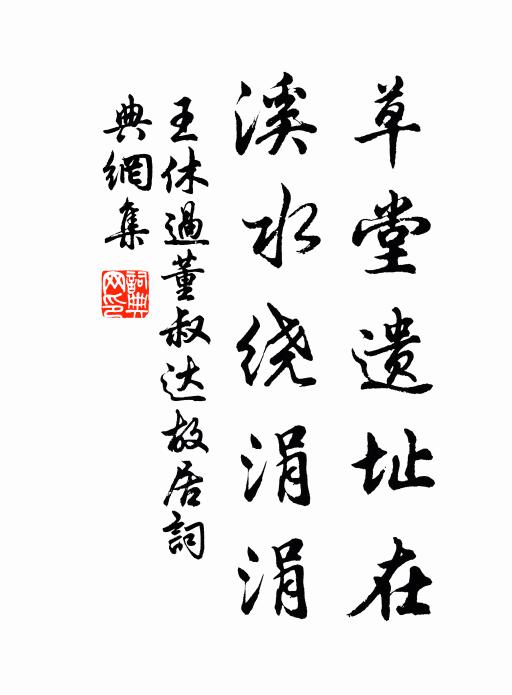 草堂遗址在
溪水绕涓涓
王休過董叔达故居詞
典網集
詞典網印